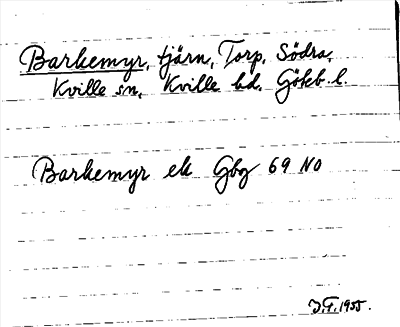 Barkemyr, tjärn, Torp, Södra,
Kville sn, Kville hd. Göteb. l.
Barkemyr ek Gbg 69 NO
J.F. 1955.